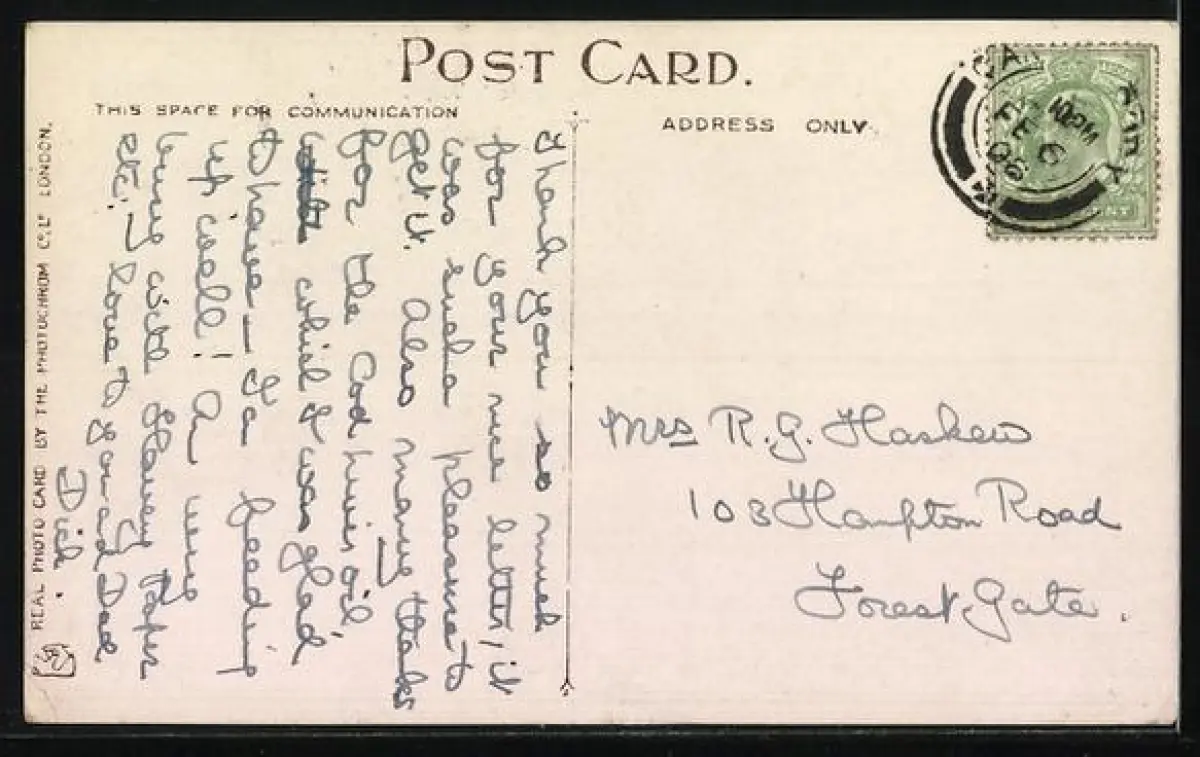 POST CARD.
THIS SPACE FOR COMMUNICATION
ADDRESS ONLY.
Thank you so much
for your nice letter, it
was such a pleasure to
get it. Also many thanks
for the Cod liver oil
which I was glad
to have – I'm feeding
up well! Am very
busy with
etc. – love to you and Dad
Dick.
Mrs R. G. Haskew
103 Hampton Road
Forest Gate.
10 PM
FE 6
06
REAL PHOTO CARD BY THE PHOTOCHROM Co. Ld LONDON.